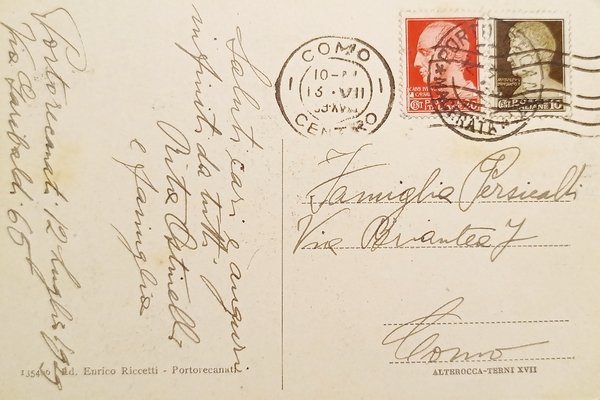 Portorecanati 12 luglio 1939
Via Garibaldi 6
Saluti cari e auguri
infiniti da tutti
Rita
e famiglia
COMO
10-
13·VII
CENTRO
POSTE ITALIANE 10
Famiglia Persicalli
Via Briantea 7
Como
135490 Ed. Enrico Riccetti - Portorecanati
ALTEROCCA-TERNI XVII